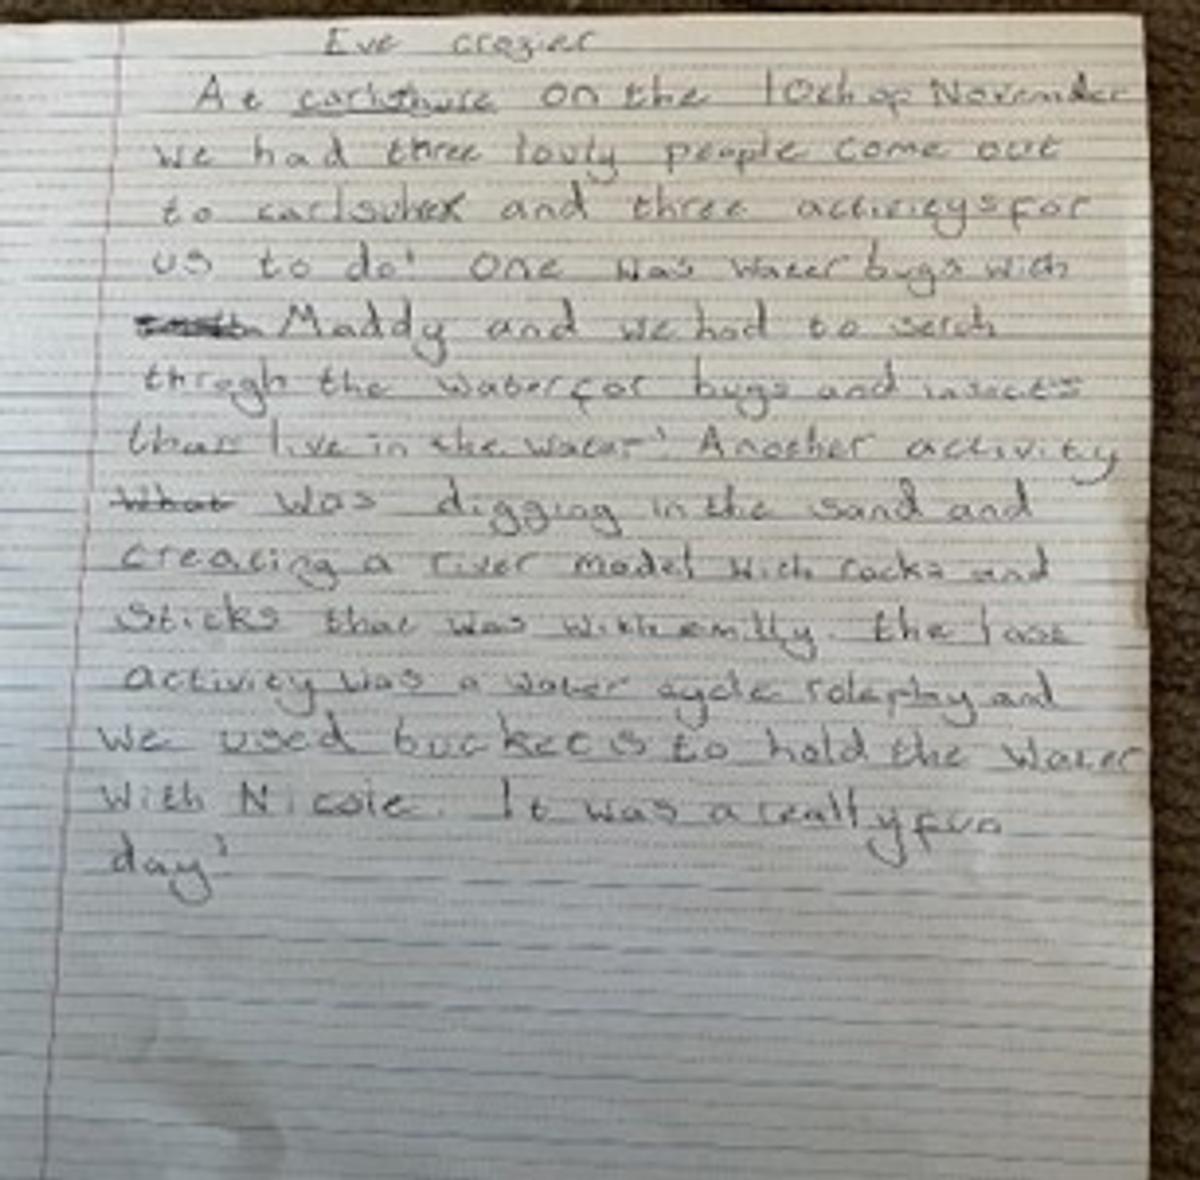 Eve crozier
At on the 10th of November
we had three lovly people come out
to and three activieys for
us to do! One was water bugs with
Maddy and we had to serch
throgh the water for bugs and insects
that live in the water! Another activity
What was digging in the sand and
creating a river model with rocks and
sticks that was with emilly. the last
activity was a water cycle roleplay and
we used buckets to hold the water
with Nicole. It was a really fun
day!